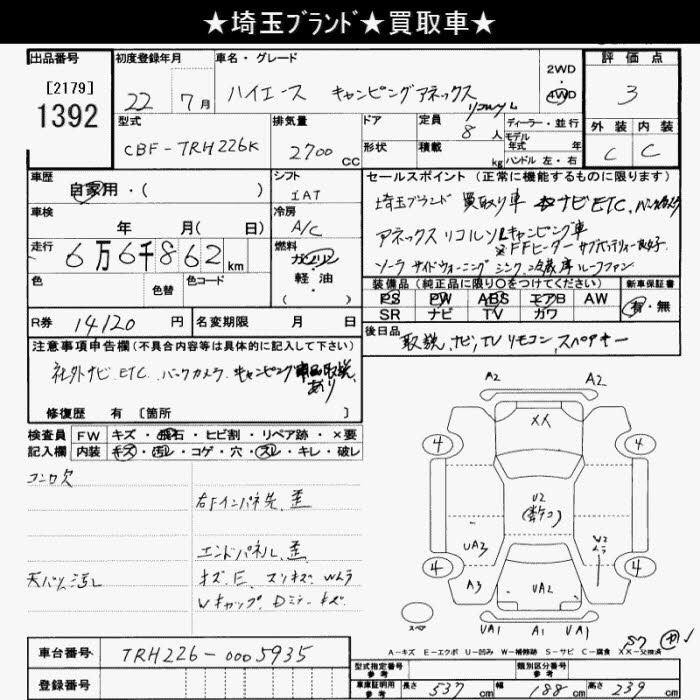 ★埼玉ﾌﾞﾗﾝﾄﾞ★買取車★
出品番号
[2179]
1392
初度登録年月
22年 7月
車名・グレード
ハイエース キャンピングアネックス
リコルソL
2WD
・
4WD
評価点
3
型式
CBF-TRH226K
排気量
2700 CC
ドア
形状
定員
8人
積載 kg
ディーラー・並行
モデル
年式 年
ハンドル 左・右
外装 内装
C C
車歴
自家用・( )
シフト
IAT
車検
年 月( 日)
冷房
A/C
走行
6万6千862km
燃料
ガソリン
・
軽油
( )
色
色替
色コード
R券 14120円
名変期限 月 日
セールスポイント (正常に機能するものに限ります)
埼玉ブランド 買取り車 ナビETC、バックカメラ
アネックス リコルソLキャンピング車
FFヒーター サブバッテリー
ソーラ サイドウォーニング シンク、冷蔵庫 ルーフファン
装備品(純正品に限り○をつけてください)
PS PW ABS エアB AW
SR ナビ TV カワ
新車保証書
有・無
後日品
取説、ナビ、TVリモコン、スペアキー
注意事項申告欄(不具合内容等は具体的に記入して下さい)
社外ナビ、ETC、バックカメラ、キャンピング 取説
あり
修復歴 有 [箇所 ]
検査員
記入欄
FW キズ・飛石・ヒビ割・リペア跡・×要
内装 キズ・汚レ・コゲ・穴・スレ・キレ・破レ
コンロ欠
右Fインパネ先、歪
エンドパネル、歪
天バリ汚レ
キズ、E、スリキズ、Wムラ
Wキャップ、Dミラーキズ
A2 A2
XX
4 4
U2
UA3
W2
ムラ
4 4
A3
UA2
UA1 A1 UA1
スペア
A-キズ E-エクボ U-凹み W-補修跡 S-サビ C-腐食 XX-交換済
車台番号
TRH226-0005935
登録番号
型式指定番号
参考
類別区分番号
参考
車庫証明用
参考
長さ 537cm
幅 188cm
高さ 239cm